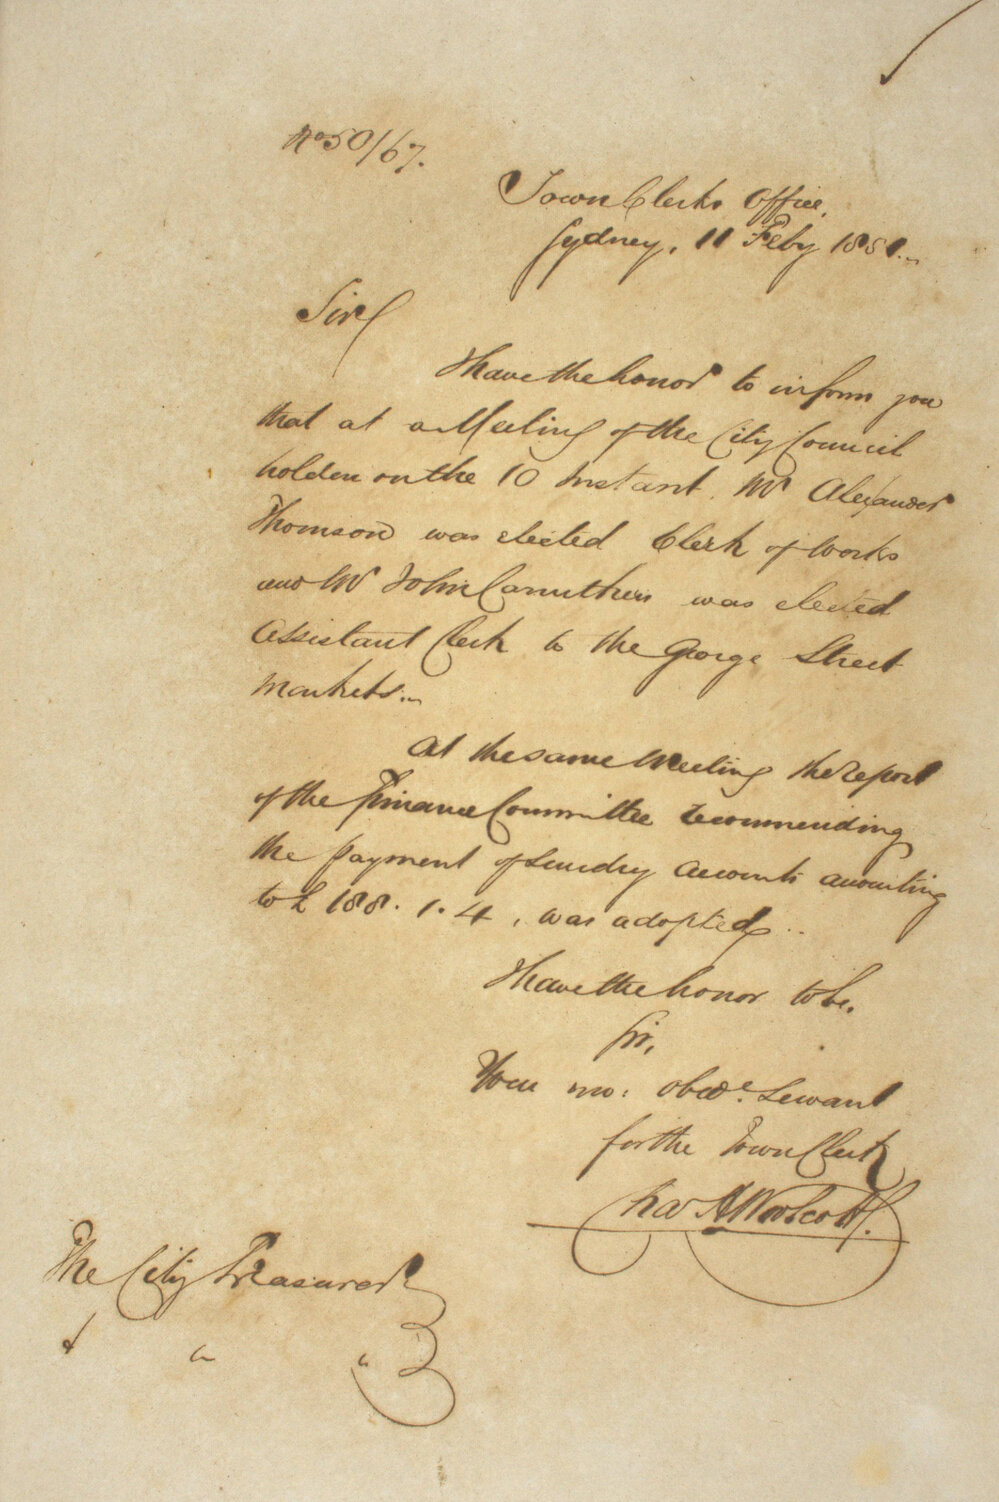 No 50/67.
Town Clerks Office,
Sydney, 11 Feby 1851.
Sir
I have the honor to inform you
that at a Meeting of the City Council
holden on the 10 Instant Mr Alexander
Thomson was elected Clerk of Works
and Mr John Carruthers was elected
Assistant Clerk to the George Street
Markets..
At the same Meeting the Report
of the Finance Committee recommending
the payment of Sundry Accounts amounting
to £188.1.4, was adopted..
I have the honor to be,
Sir,
Your mo: obedt. Servant
for the Town Clerk
Chas H Woolcott.
The City Treasurer
&